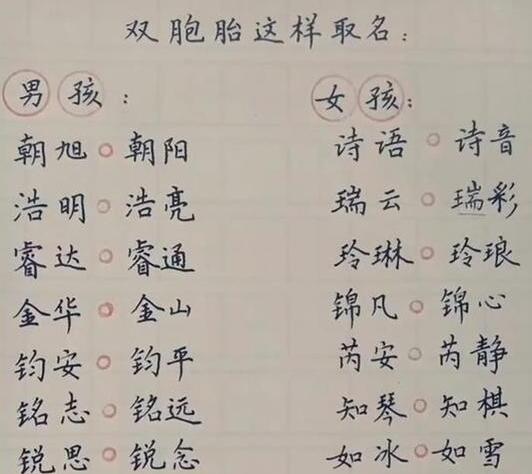 双胞胎这样取名：
男孩：
朝旭○朝阳
浩明○浩亮
睿达○睿通
金华○金山
钧安○钧平
铭志○铭远
锐思○锐念
女孩：
诗语○诗音
瑞云○瑞彩
玲琳○玲琅
锦凡○锦心
芮安○芮静
知琴○知棋
如冰○如雪